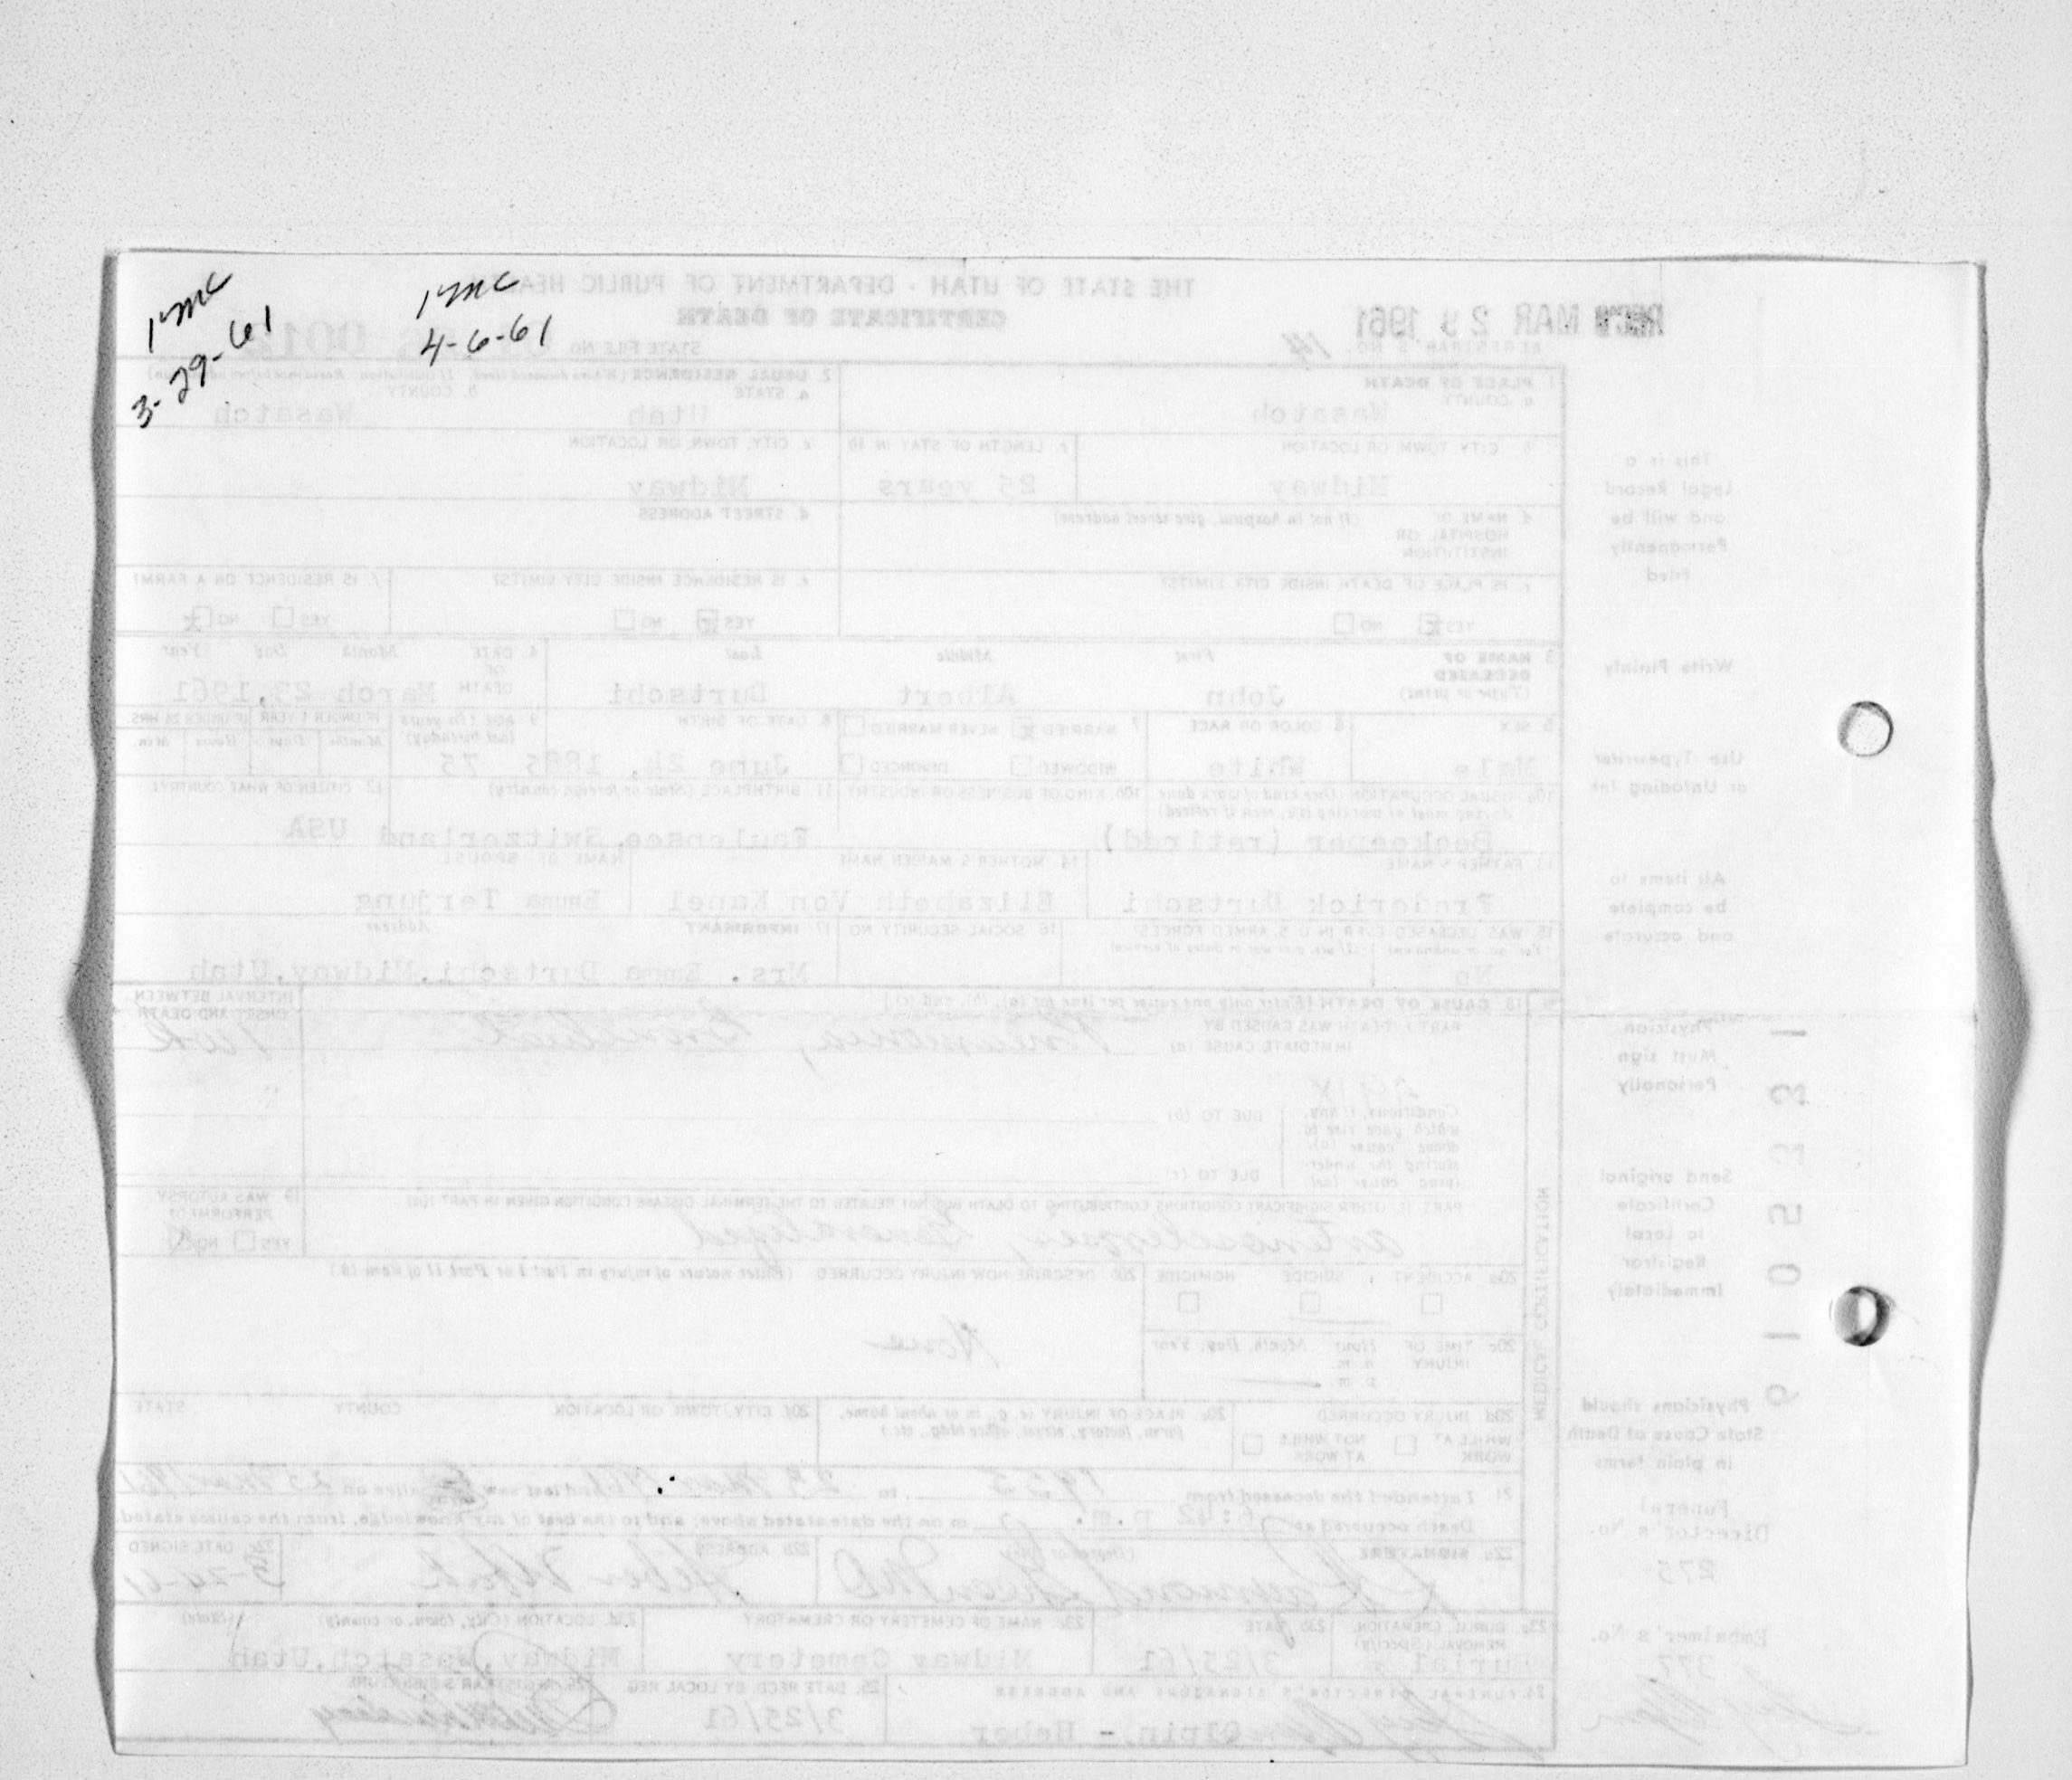 1mc
3-29-61
1mc
4-6-61
THE STATE OF UTAH - DEPARTMENT OF PUBLIC HEALTH
CERTIFICATE OF DEATH
REC'D MAR 29 1961
REGISTRAR'S NO. 14
STATE FILE NO.
1. PLACE OF DEATH
a. COUNTY
Wasatch
2. USUAL RESIDENCE (Where deceased lived. If institution: Residence before admission)
a. STATE
Utah
b. COUNTY
Wasatch
b. CITY, TOWN, OR LOCATION
Midway
c. LENGTH OF STAY IN 1b
25 years
c. CITY, TOWN, OR LOCATION
Midway
d. NAME OF HOSPITAL OR INSTITUTION
(If not in hospital, give street address)
d. STREET ADDRESS
e. IS PLACE OF DEATH INSIDE CITY LIMITS?
YES NO
e. IS RESIDENCE INSIDE CITY LIMITS?
YES NO
f. IS RESIDENCE ON A FARM?
YES NO
3. NAME OF DECEASED
(Type or print)
First Middle Last
John Albert Durtschi
4. DATE OF DEATH
Month Day Year
March 23, 1961
5. SEX
Male
6. COLOR OR RACE
White
7. MARRIED NEVER MARRIED
WIDOWED DIVORCED
8. DATE OF BIRTH
June 24, 1885
9. AGE (In years last birthday)
75
IF UNDER 1 YEAR
Months Days
IF UNDER 24 HRS.
Hours Min.
10a. USUAL OCCUPATION (Give kind of work done during most of working life, even if retired)
Beekeeper (retired)
10b. KIND OF BUSINESS OR INDUSTRY
11. BIRTHPLACE (State or foreign country)
Faulensee, Switzerland
12. CITIZEN OF WHAT COUNTRY?
USA
13. FATHER'S NAME
Frederick Durtschi
14. MOTHER'S MAIDEN NAME
Elizabeth Von Kanel
NAME OF SPOUSE
Emma Terjung
15. WAS DECEASED EVER IN U.S. ARMED FORCES?
No
16. SOCIAL SECURITY NO.
17. INFORMANT Address
Mrs. Emma Durtschi, Midway, Utah
18. CAUSE OF DEATH [Enter only one cause per line for (a), (b), and (c).]
INTERVAL BETWEEN ONSET AND DEATH
PART I. DEATH WAS CAUSED BY:
IMMEDIATE CAUSE (a)
Pneumonia,
1 wk
Conditions, if any, which gave rise to above cause (a), stating the underlying cause last
DUE TO (b)
DUE TO (c)
PART II. OTHER SIGNIFICANT CONDITIONS CONTRIBUTING TO DEATH BUT NOT RELATED TO THE TERMINAL DISEASE CONDITION GIVEN IN PART I(a)
arteriosclerosis, Generalized
19. WAS AUTOPSY PERFORMED?
YES NO
20a. ACCIDENT SUICIDE HOMICIDE
20b. DESCRIBE HOW INJURY OCCURRED (Enter nature of injury in Part I or Part II of item 18.)
None
20c. TIME OF INJURY
Hour Month, Day, Year
a.m.
p.m.
20d. INJURY OCCURRED
WHILE AT WORK NOT WHILE AT WORK
20e. PLACE OF INJURY (e.g., in or about home, farm, factory, street, office bldg., etc.)
20f. CITY, TOWN, OR LOCATION COUNTY STATE
21. I attended the deceased from 1955 to 23 Mar and last saw alive on 23 Mar 1961
Death occurred at 6:42 p.m. on the date stated above; and to the best of my knowledge, from the causes stated.
22a. SIGNATURE (Degree or title)
22b. ADDRESS
Heber Utah
22c. DATE SIGNED
3-24-61
23a. BURIAL, CREMATION, REMOVAL (Specify)
Burial
23b. DATE
3/25/61
23c. NAME OF CEMETERY OR CREMATORY
Midway Cemetery
23d. LOCATION (City, town, or county) (State)
Midway, Wasatch, Utah
24. FUNERAL DIRECTOR'S SIGNATURE AND ADDRESS
Olpin - Heber
25. DATE RECD. BY LOCAL REG.
3/25/61
26. REGISTRAR'S SIGNATURE
MEDICAL CERTIFICATION
This is a
Legal Record
and will be
Permanently
Filed
Write Plainly
Use Typewriter
or Unfading Ink
All items to
be complete
and accurate
Physician
Must sign
Personally
Send original
Certificate
to Local
Registrar
Immediately
Physicians should
State Cause of Death
in plain terms
Funeral
Director's No.
275
Embalmer's No.
377